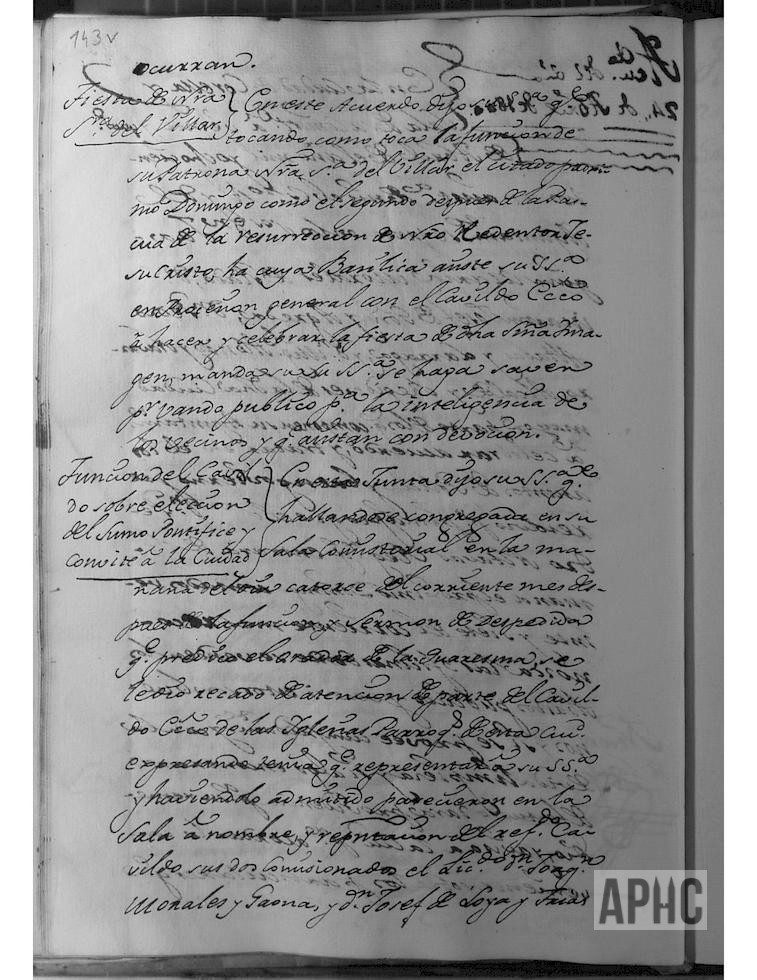 143v
ocurran.
Fiesta de Nrâ
Srâ del Villar
En este Acuerdo, dijo su SSª qe
tocando, como toca la funcion de
su Patrona Nrâ Sª del Villar el citado proxi-
mo Domingo como el segundo despues de la Pas-
cua de la resurreccion de Nrô Redentor Je-
sucristo, ha cuya Basilica asiste su SSª
en Procesion general con el Cavildo Ecco
à hacer y celebrar la fiesta de dha Stña Ima-
gen, manda su SSª se haga saver
pr vando publico pª la inteligencia de
los vecinos y qe asistan con devocion.
Funcion del Cavil
do sobre eleccion
del Sumo Pontifice y
convite à la Ciudad
En esta Junta dijo su SSª qe
hallandose congregada en su
Sala Consistorial en la ma-
ñana del dia catorce del corriente mes des-
pues de la funcion y Sermon de Despedida
qe predicó el orador de la quaresma se
le dio recado de atencion de parte del Cavil-
do Ecco de las Iglesias Parroqs de esta Ciud.
expresando tenia qe representar à su SSª
y haviendolo admitido parecieron en la
Sala à nombre, y reputacion del refdo Ca-
vildo sus dos Comisionados el Licdo Dn Joaqn
Morales y Gaona, y dn Josef de Loya y Frias
APHC